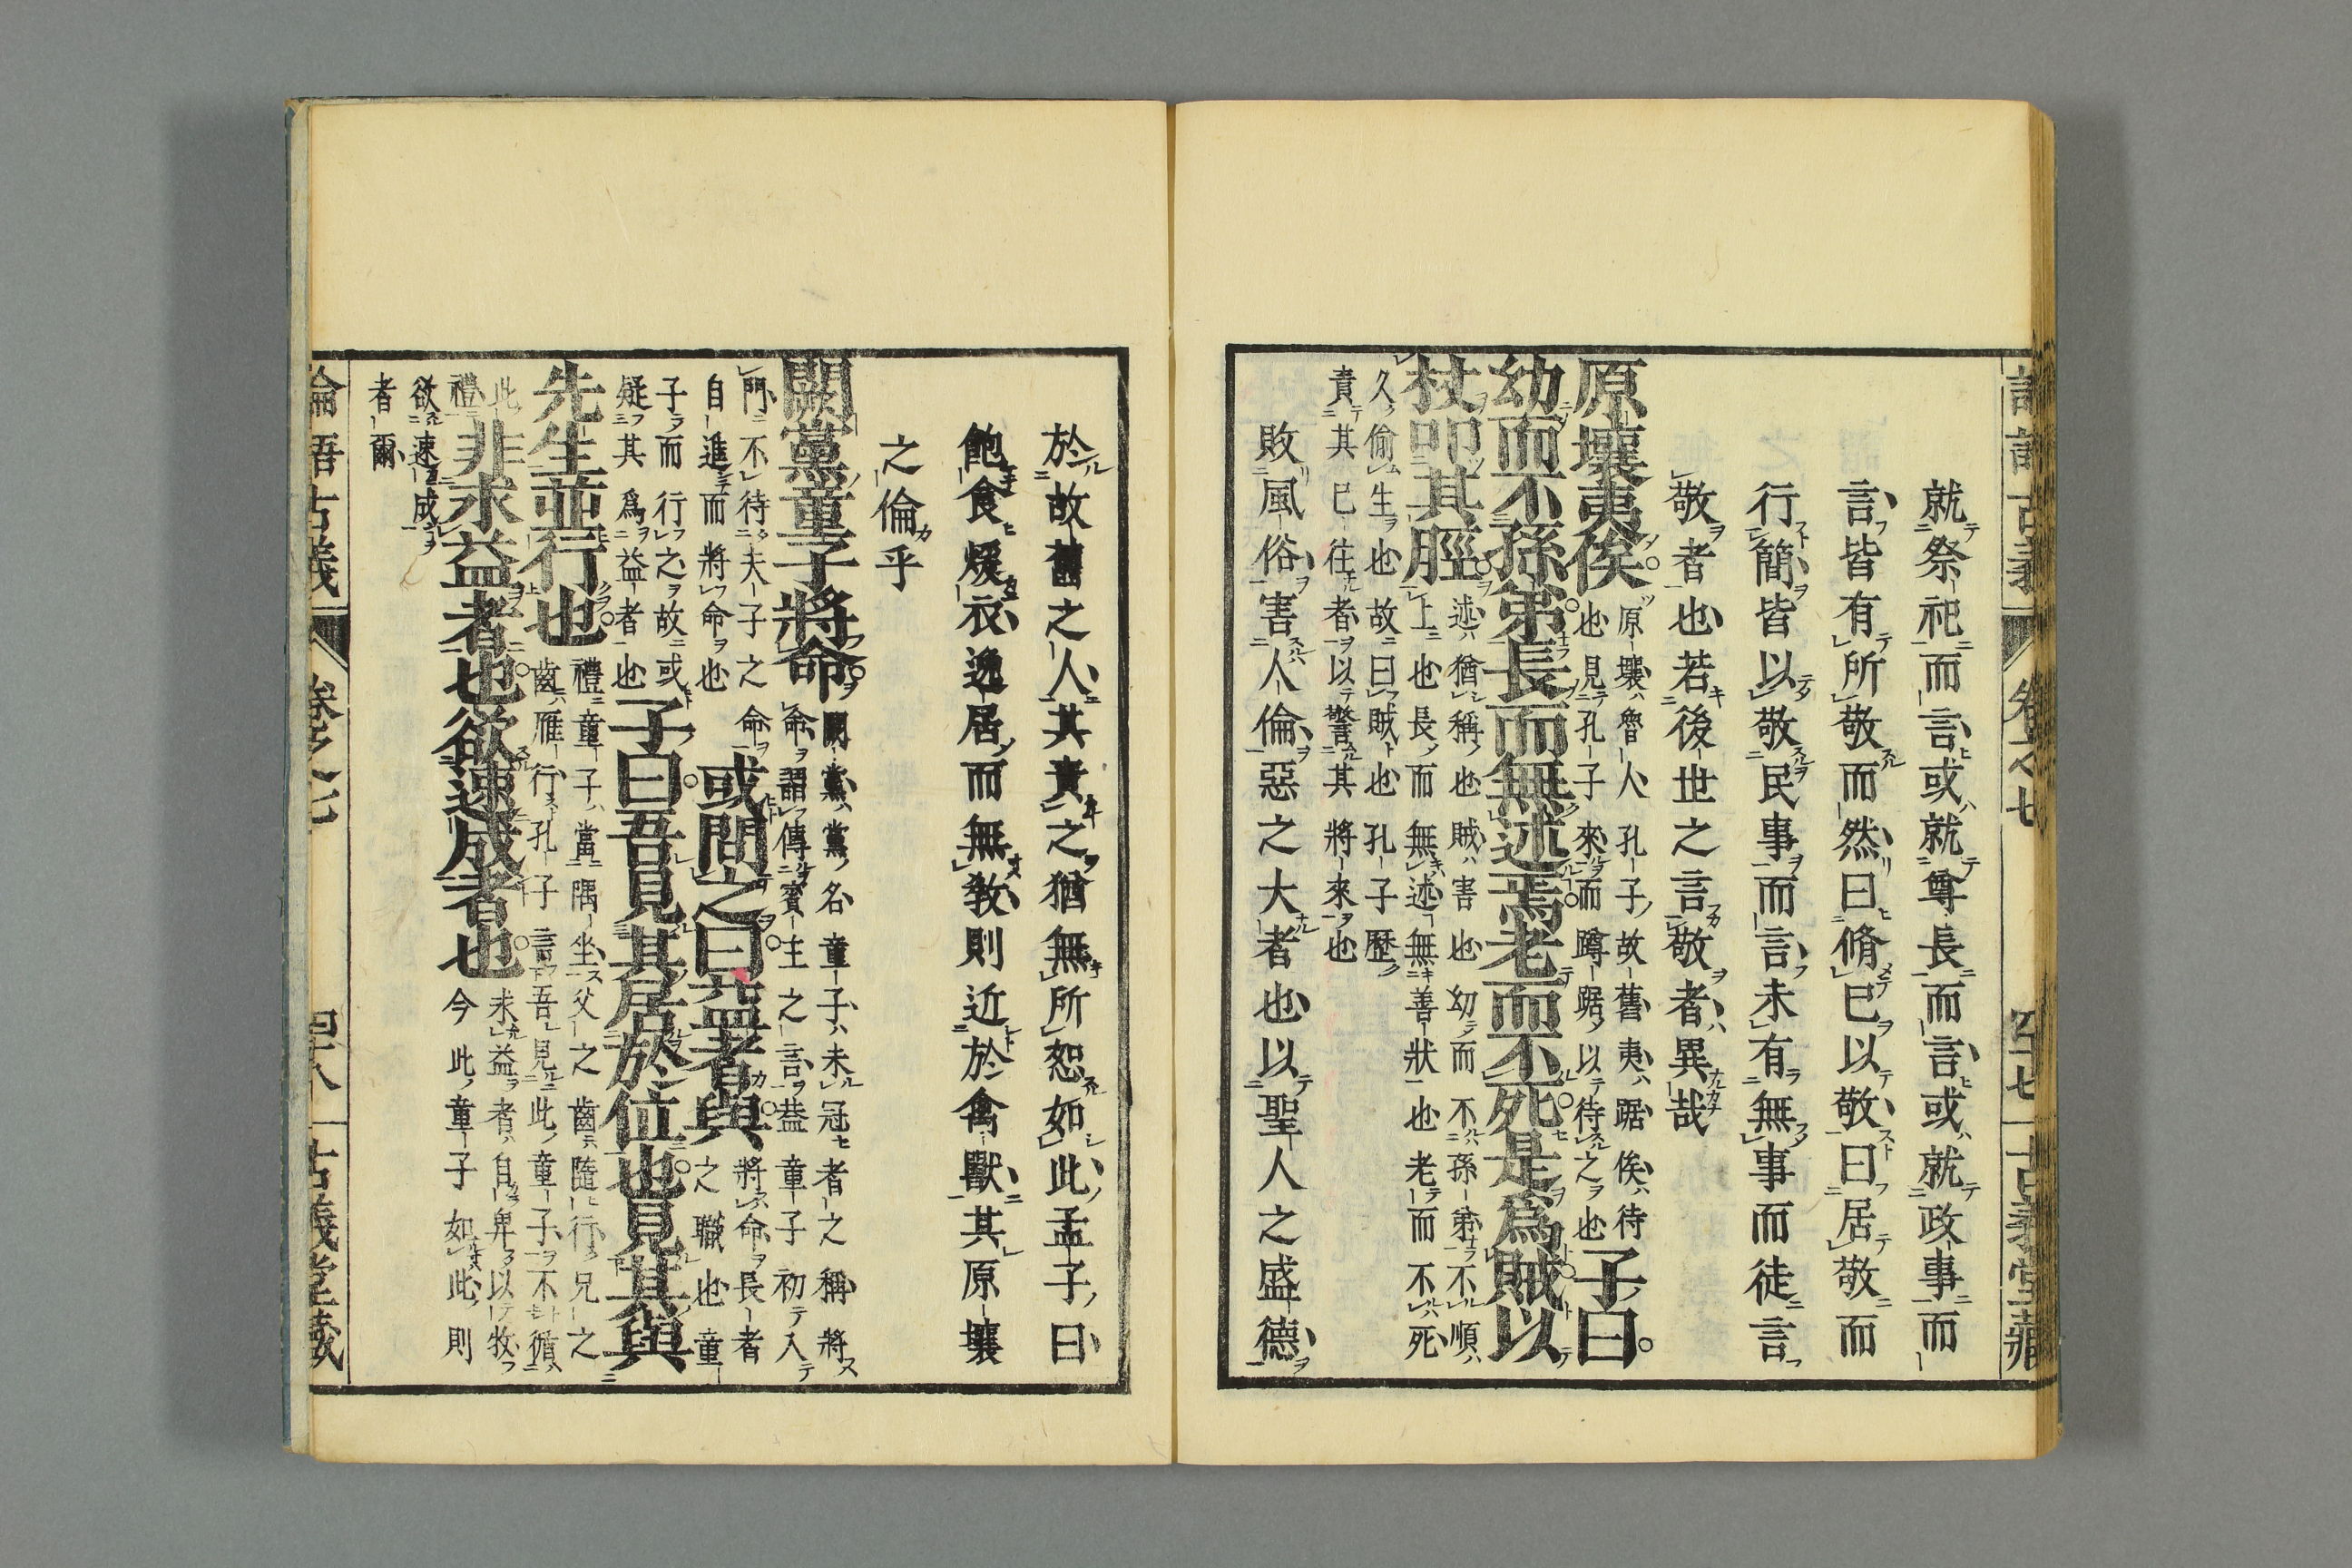 就祭祀而言或就尊長而言或就政事而
言皆有所敬而然曰脩己以敬曰居敬而
行簡皆以敬民事而言未有無事而徒言
敬者也若後世之言敬者異哉
原壤夷俟
原壤魯人孔子故舊夷踞俟待
也見孔子來而蹲踞以待之也
子曰
幼而不孫弟長而無述焉老而不死是爲賊以
杖叩其脛
述猶稱也賊害也幼而不孫弟不順
上也長而無述無善狀也老而不死
久偷生也故曰賊也孔子歷
責其已往者以警其將來也
敗風俗害人倫惡之大者也以聖人之盛德
於故舊之人其責之猶無所恕如此孟子曰
飽食煖衣逸居而無敎則近於禽獸其原壤
之倫乎
闕黨童子將命
闕黨黨名童子未冠者之稱將
命謂傳賓主之言益童子初入
門不待夫子之命將命長者
自進而將命也之職也童
或問之曰益者與
子而行之故或
疑其爲益者也
子曰吾見其居於位也見其與
先生並行也
禮童子當隅坐父之齒隨行兄之
齒雁行孔子言吾見此童子不循
此
禮
非求益者也欲速成者也
未益者自卑以牧
今此童子如此則
欲速成
者爾
論語古義
卷之七
四十七
古義堂藏
論語古義
卷之七
四十八
古義堂藏